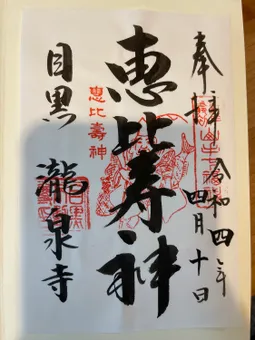 奉拝 令和四年
四月十日
恵比寿神
恵比壽神
目黒 瀧泉寺